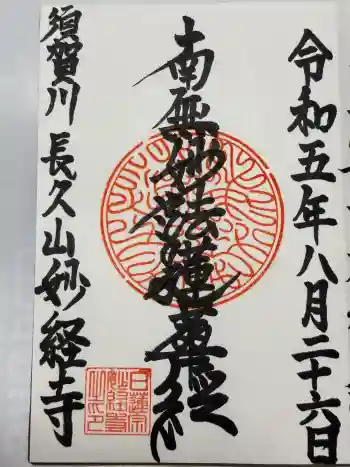 令和五年八月二十六日
南無妙法蓮華経
須賀川 長久山妙経寺